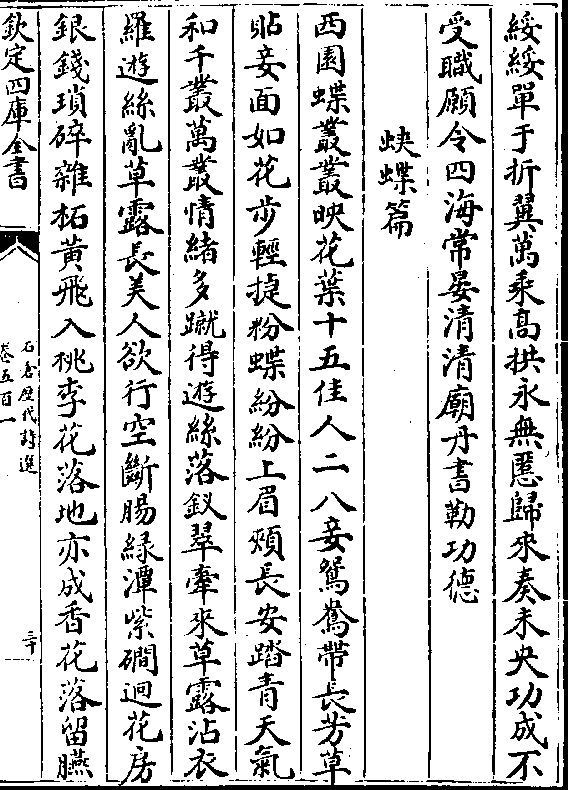 綏綏單于折翼萬乘髙拱永無慝歸來奏未央功成不
受職願令四海常晏清清廟丹書勒功德
蛺蝶篇
西園蝶叢叢映花葉十五佳人二八妾鴛鴦帶長芳草
貼妾面如花步輕捷粉蝶紛紛上眉頰長安踏青天氣
和千叢萬叢情緒多蹴得遊絲落釵翠牽來草露沾衣
羅遊絲亂草露長美人欲行空斷腸緑潭紫磵迴花房
銀錢瑣碎雜柘黄飛入桃李花落地亦成香花落留臙
欽定四庫全書
石倉歴代詩選
卷五百一
三十